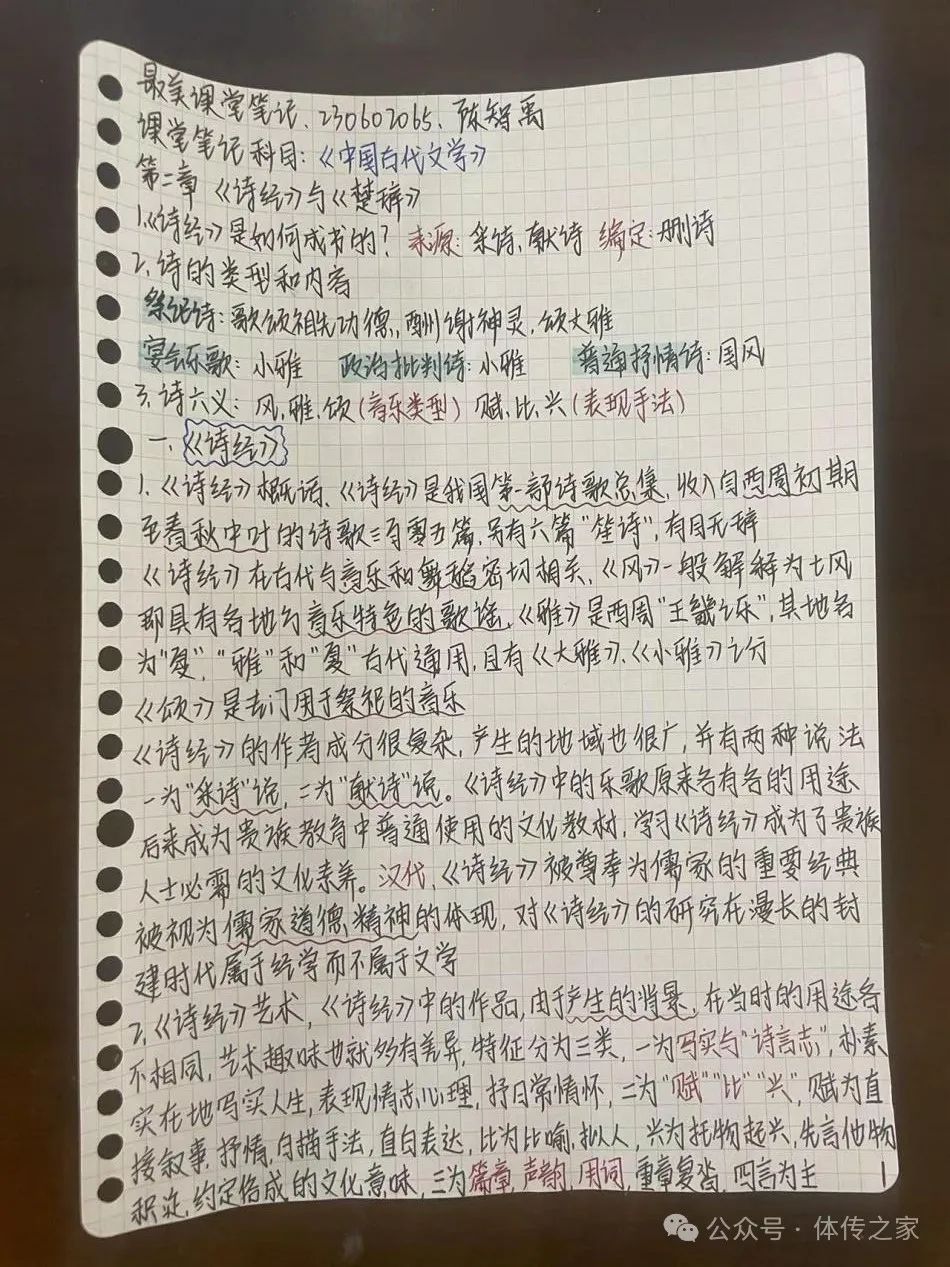 最美课堂笔记、230602065、陈智禹
课堂笔记科目:《中国古代文学》
第二章 《诗经》与《楚辞》
1.《诗经》是如何成书的? 来源:采诗、献诗 编定:删诗
2.诗的类型和内容
祭祀诗:歌颂祖先功德,酬谢神灵,颂大雅
宴会乐歌:小雅 政治批判诗:小雅 普通抒情诗:国风
3.诗六义:风、雅、颂(音乐类型) 赋、比、兴(表现手法)
一、《诗经》
1.《诗经》概说、《诗经》是我国第一部诗歌总集,收入自西周初期
至春秋中叶的诗歌三百零五篇,另有六篇“笙诗”,有目无辞
《诗经》在古代与音乐和舞蹈密切相关,《风》一般解释为土风
即具有各地方音乐特色的歌谣,《雅》是西周“王畿之乐”,其地名
为“夏”,“雅”和“夏”古代通用,且有《大雅》、《小雅》之分
《颂》是专门用于祭祀的音乐
《诗经》的作者成分很复杂,产生的地域也很广,并有两种说法
一为“采诗”说,二为“献诗”说。《诗经》中的乐歌原来各有各的用途
后来成为贵族教育中普通使用的文化教材,学习《诗经》成为了贵族
人士必需的文化素养。汉代,《诗经》被尊奉为儒家的重要经典
被视为儒家道德精神的体现,对《诗经》的研究在漫长的封
建时代属于经学而不属于文学
2.《诗经》艺术,《诗经》中的作品,由于产生的背景,在当时的用途各
不相同,艺术趣味也就多有差异,特征分为三类,一为写实与“诗言志”,朴素
实在地写实人生,表现情志心理,抒日常情怀,二为“赋”“比”“兴”,赋为直
接叙事,抒情,白描手法,直白表达,比为比喻,拟人,兴为托物起兴,先言他物
积淀,约定俗成的文化意味,三为篇章,声韵,用词,重章复沓,四言为主
1
公众号·体传之家